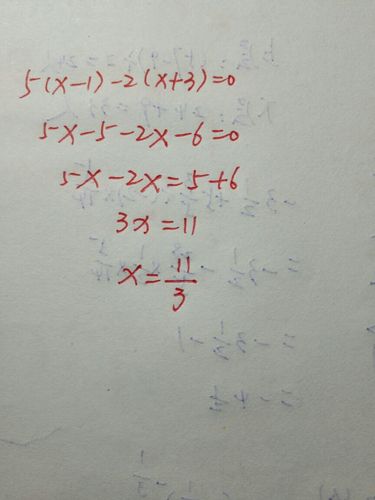 5(x-1)-2(x+3)=0
5x-5-2x-6=0
5x-2x=5+6
3x=11
x=11/3